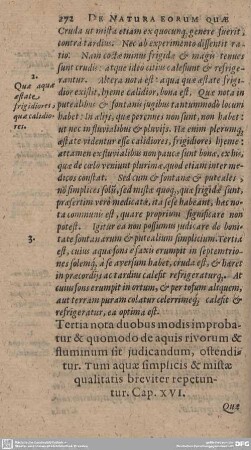 272 DE NATURA EORUM QUÆ
Cruda ut mista etiam ex quocunq, genere fuerit,
contra tardius. Nec ab experimento dissentit ra-
tio. Nam cū tè minùs frigidæ & magis tenues
sunt crudis: atque ideo citius calescunt & refrige-
rantur. Altera nota est: aqua quæ æstate frigi-
dior existit, hyeme calidior, bona est. Quæ nota in
putealibus & fontanis jugibus tantummodo locum
habet: In alijs, quæ perennes non sunt, non habet:
ut nec in fluvialibus & pluvijs. Hæ enim plerumq,
æstate videntur esse calidiores, frigidiores hyeme:
attamen ex fluvialibus non paucæ sunt bonæ, ex his,
quæ de cœlo veniunt plurimæ, quod etiam inter me-
dicos constat. Sed cùm & fontanæ & puteales,
nō simplices solū, sed mistæ quoq, quæ frigidæ sunt,
præsertim verò medicatæ, ita sese habeant, hæc no-
ta communis est, quare proprium significare non
potest. Igitur ea non possumus judicare do boni-
tate fontanarum & putealium simplicium. Tertia
est, cujus aquæ fons è saxis erumpit in septemtrio-
nes solemq, à se aversum habet, cruda est, & hæret
in præcordijs ac tardius calesit refrigeraturq,. At
cujus fons erumpit in ortum, & per tofum aliquem,
aut terram puram colatur celerrimeq, calesit &
refrigeratur, ea optima est.
Tertia nota duobus modis improba-
tur & quomodo de aquis rivorum &
fluminum sit judicandum, ostendi-
tur. Tum aquæ simplicis & mistæ
qualitatis breviter repetun-
tur. Cap. XVI.
Quæ
2.
Qua aqua
æstate
frigidiores
quæ calidio-
res.
3.